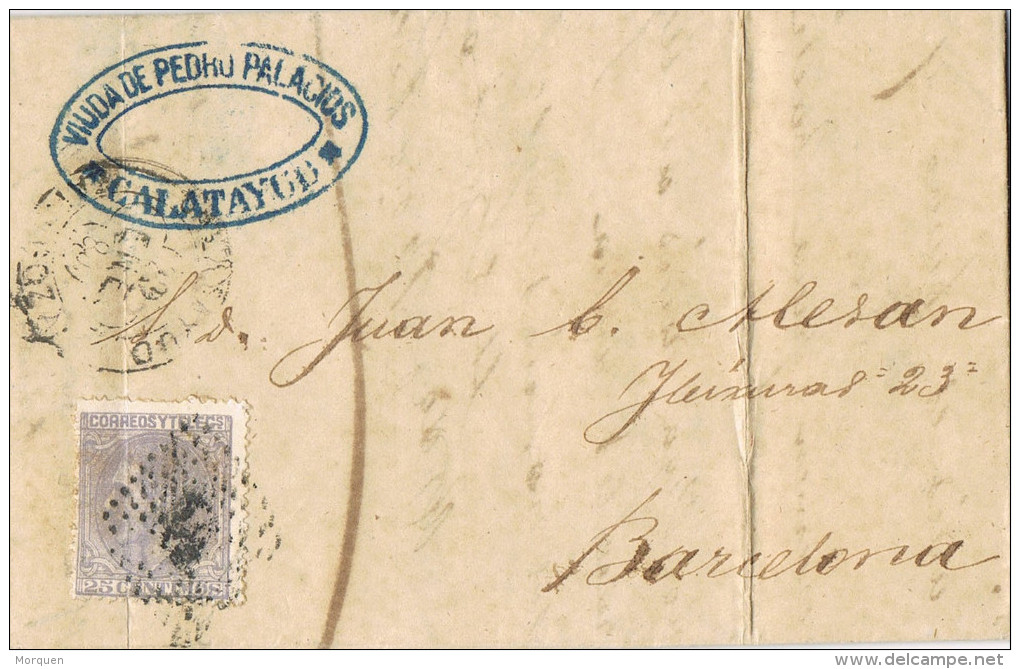 VIUDA DE PEDRO PALACIOS
CALATAYUD
S. d. Juan b. Alesan
23
Barcelona
CORREOS Y TELEGS
25 CENT. DE
Morquen
delcampe.net